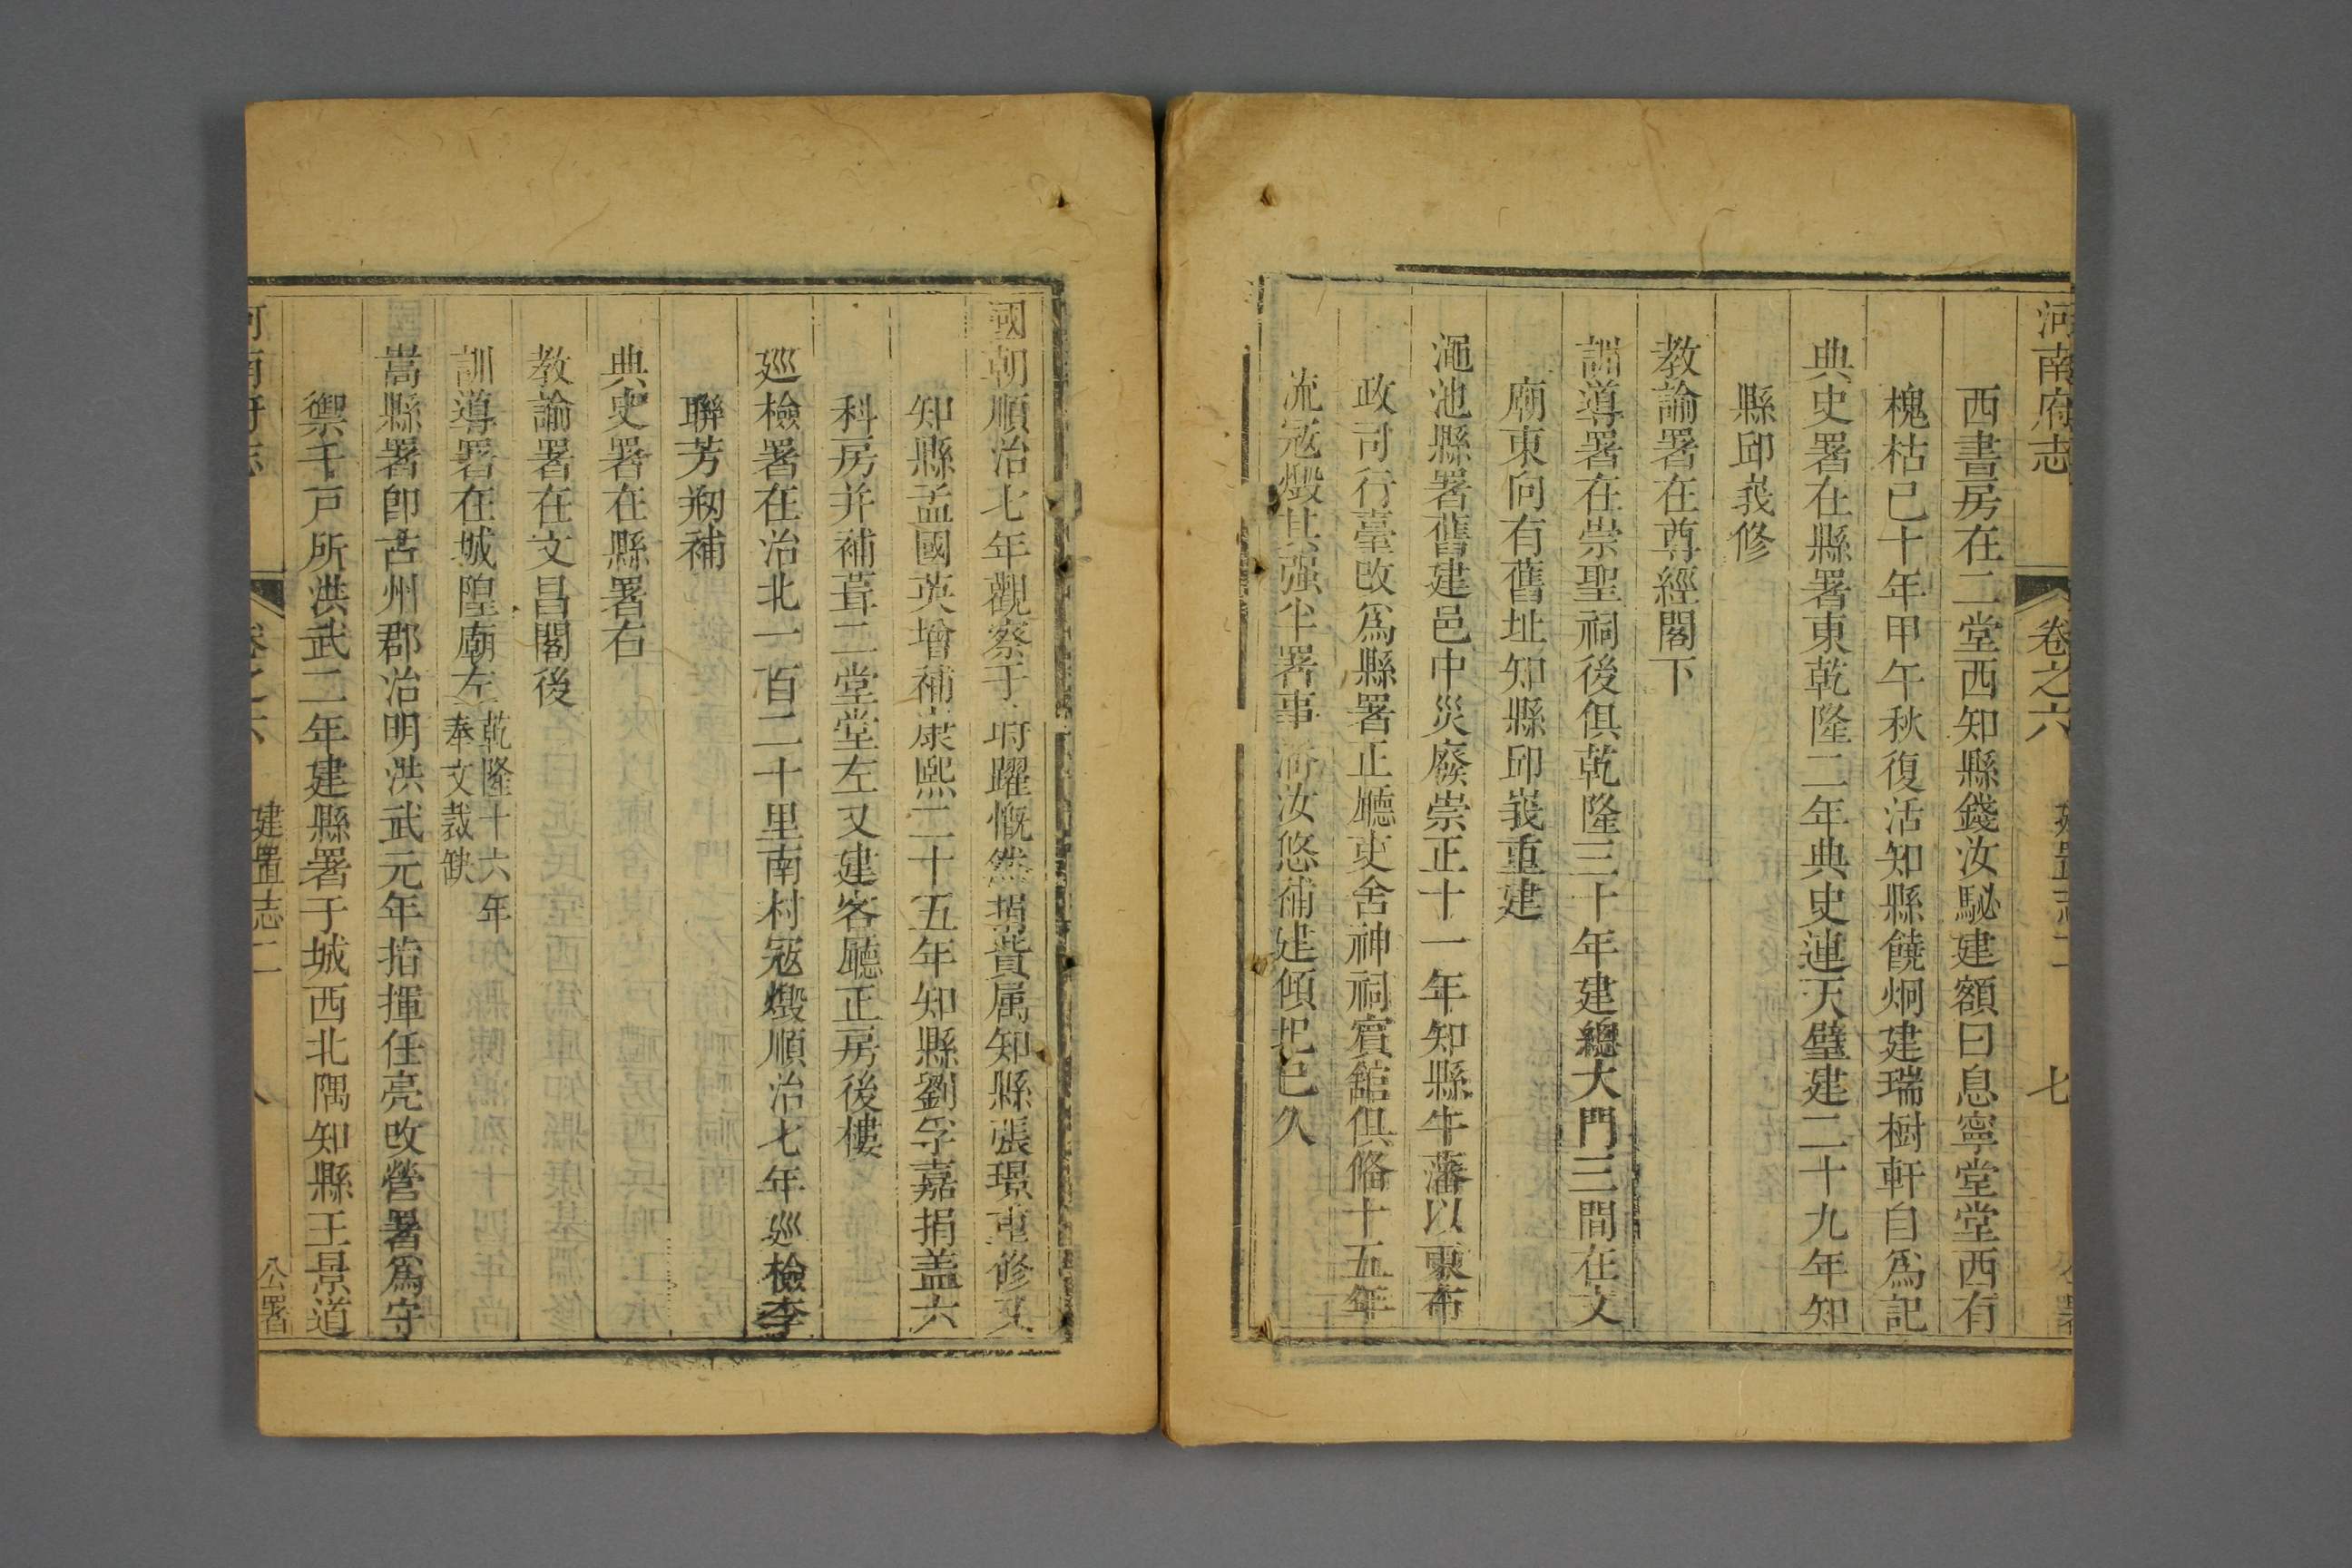 河南府志 卷之六 建置志二 七 公署
西書房在二堂西知縣錢汝駜建額曰息寧堂堂西有
槐枯已十年甲午秋復活知縣饒炯建瑞樹軒自爲記
典史署在縣署東乾隆二年典史連天璧建二十九年知
縣邱峩修
教諭署在尊經閣下
訓導署在崇聖祠後俱乾隆三十年建總大門三間在文
廟東向有舊址知縣邱峩重建
澠池縣署舊建邑中災廢崇正十一年知縣牛藩以東布
政司行臺改爲縣署正廳吏舍神祠賓舘俱俻十五年
流寇燬其强半署事 汝悠補建傾圯已久
國朝順治七年觀察于 府躍慨然捐貲属知縣張璟重修又
知縣孟國英增補康熙二十五年知縣劉孚嘉捐盖六
科房并補葺二堂堂左又建客廳正房後樓
廵檢署在治北一百二十里南村寇燬順治七年廵檢李
聯芳剏補
典史署在縣署右
教諭署在文昌閣後
訓導署在城隍廟左乾隆十六年奉文裁缺
嵩縣署卽古州郡治明洪武元年指揮任亮改營署爲守
禦千戸所洪武二年建縣署于城西北隅知縣王景道
河南府志 卷之六 建置志二 八 公署